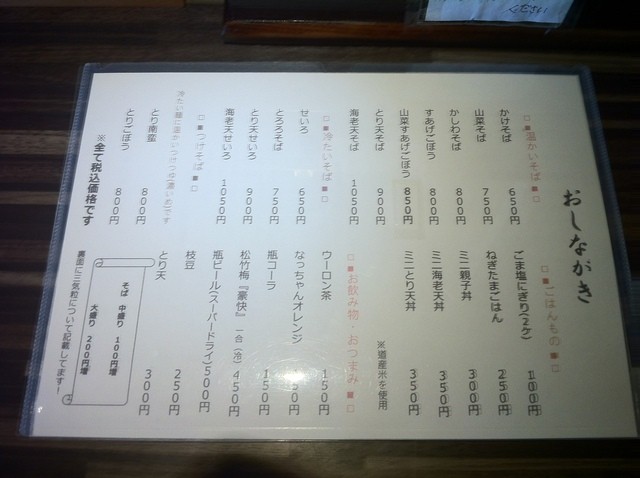 おしながき
■□温かいそば■□
かけそば 650円
山菜そば 750円
かしわそば 800円
すあげごぼう 800円
山菜すあげごぼう 850円
とり天そば 900円
海老天そば 1050円
■□冷たいそば■□
せいろ 650円
とろろそば 750円
とり天せいろ 900円
海老天せいろ 1050円
■□つけそば■□
とり南蛮 800円
とりごぼう 800円
※全て税込価格です
■□ごはんもの■□
ごま塩にぎり(2ケ) 100円
ねぎたまごはん 250円
ミニ親子丼 300円
ミニ海老天丼 350円
ミニとり天丼 350円
※道産米を使用
■□お飲み物・おつまみ■□
ウーロン茶 150円
なっちゃんオレンジ 150円
瓶コーラ 150円
松竹梅『豪快』一合(冷) 450円
瓶ビール(スーパードライ) 500円
枝豆 250円
とり天 300円
そば 中盛り 100円増
大盛り 200円増
裏面に三気粒について記載してます！